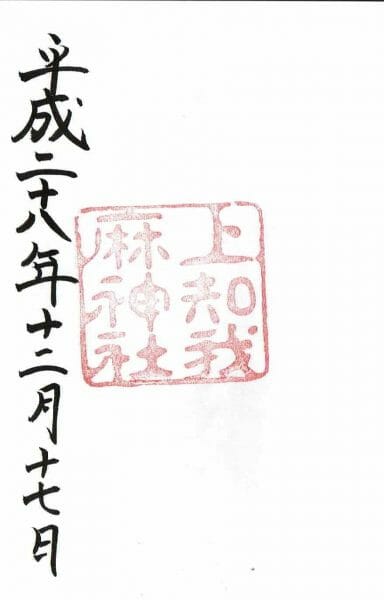 上知我
麻神社
平成二十八年十二月十七日